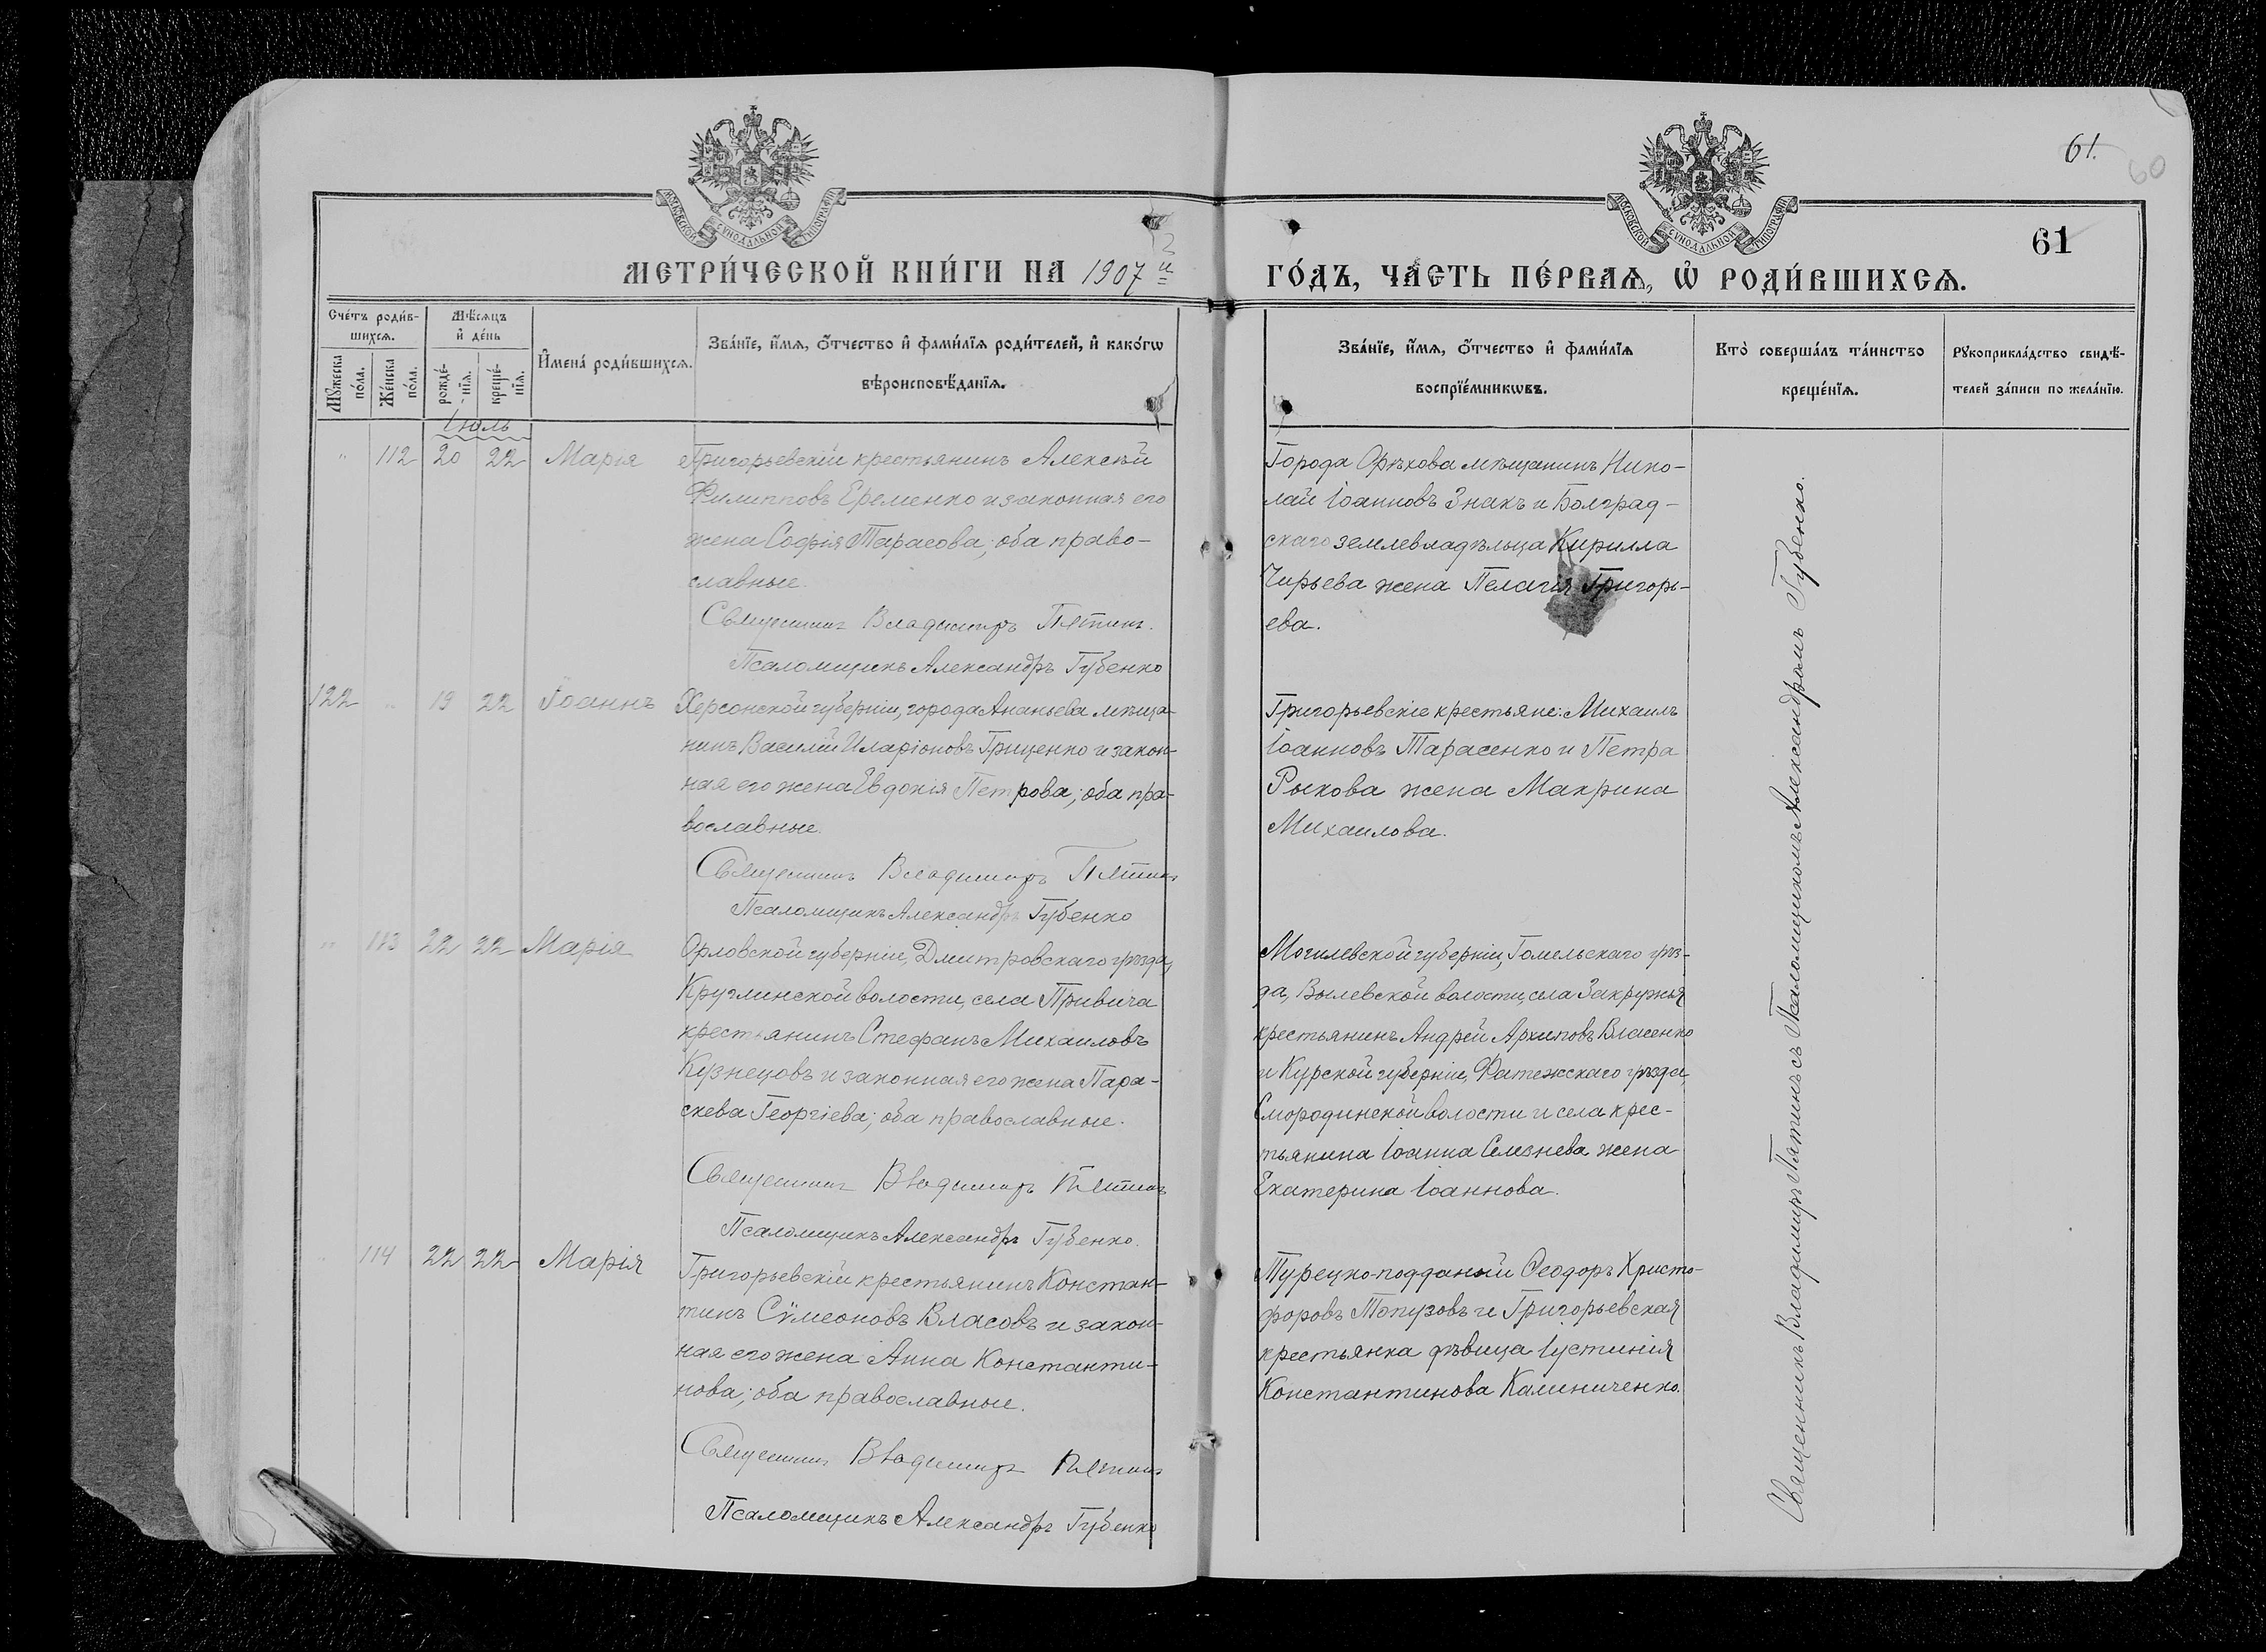 61.
60
61
МОСКОВСКОЙ СѴНОДАЛЬНОЙ ТИПОГРАФІИ
МОСКОВСКОЙ СѴНОДАЛЬНОЙ ТИПОГРАФІИ
МЕТРИ́ЧЕСКОЙ КНИ́ГИ НА 1907 й
ГО́ДЪ, ЧА́СТЬ ПЕ́РВАѦ, Ѽ РОДИ́ВШИХСѦ.
Сче́тъ роди́в-
шихсѧ.
Мꙋ́жеска по́ла.
Же́нска по́ла.
Мѣ́сѧцъ
и҆ де́нь
рожде́-
нїѧ.
креще́-
нїѧ.
И҆мена̀ роди́вшихсѧ.
Зва́нїе, и҆́мѧ, ѻ҆́тчество и҆ фами́лїѧ роди́телей, и҆ како́гѡ
вѣроисповѣ́данїѧ.
Зва́нїе, и҆́мѧ, ѻ҆́тчество и҆ фами́лїѧ
воспрїе́мникѡвъ.
Кто̀ соверша́лъ та́инство
креще́нїѧ.
Рꙋкоприкла́дство свидѣ́-
телей за́писи по жела́нїю.
Іюль
" 112 20 22 Марія
Григорьевскій крестьянинъ Алексѣй
Филипповъ Еременко и законная его
жена Софія Тарасова; оба право-
славные.
Священникъ Владимиръ Пятинъ.
Псаломщикъ Александръ Губенко
Города Орѣхова мѣщанинъ Нико-
лай Іоанновъ Знакъ и Болград-
скаго землевладѣльца Кирилла
Чирьева жена Пелагія Григорь-
ева.
122 " 19 22 Іоаннъ
Херсонской губерніи, города Ананьева мѣща-
нинъ Василій Иларіоновъ Гриценко и закон-
ная его жена Евдокія Петрова; оба пра-
вославные.
Священникъ Владимиръ Пятинъ
Псаломщикъ Александръ Губенко
Григорьевскіе крестьяне: Михаилъ
Іоанновъ Тарасенко и Петра
Рыкова жена Макрина
Михаилова.
" 113 22 22 Марія
Орловской губерніи, Дмитровскаго уѣзда,
Круглинской волости, села Привича
крестьянинъ Стефанъ Михаиловъ
Кузнецовъ и законная его жена Пара-
скева Георгіева; оба православные.
Священникъ Владимиръ Пятинъ
Псаломщикъ Александръ Губенко.
Могилевской губерніи, Гомельскаго уѣз-
да, Вылевской волости, села Закружья
крестьянинъ Андрей Архиповъ Власенко
и Курской губерніи, Фатежскаго уѣзда,
Смородинской волости и села крес-
тьянина Іоанна Селезнева жена
Екатерина Іоаннова.
114 22 22 Марія
Григорьевскій крестьянинъ Констан-
тинъ Сѵмеоновъ Власовъ и закон-
ная его жена Анна Константи-
нова; оба православные.
Священникъ Владимиръ Пятинъ
Псаломщикъ Александръ Губенко
Турецко-подданый Ѳеодоръ Христо-
форовъ Топузовъ и Григорьевская
крестьянка дѣвица Іустинія
Константинова Калиниченко.
Священникъ Владимиръ Пятинъ съ Псаломщикомъ Александромъ Губенко.